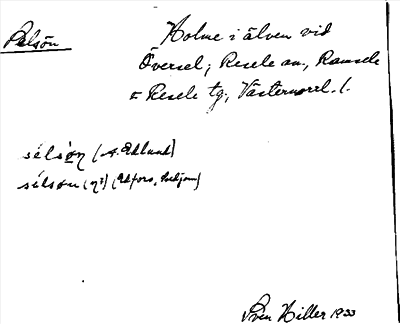 Selsön
Holme i älven vid
Översel; Resele sn., Ramsele
o Resele tg., Västernorrl. l.
sélsøn (A. Edlund)
sélsøn (η?) (Edfors,
Sven Hiller 1933